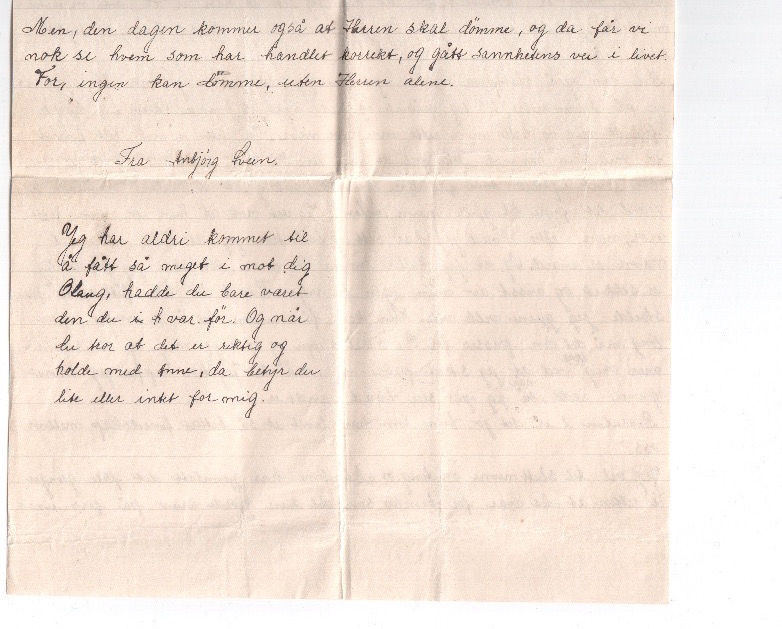 Men, den dagen kommer også at Herren skal dömme, og da får vi
nok se hvem som har handlet korrekt, og gått sannhetens vei i livet.
For, ingen kan dömme, uten Herren alene.
Fra Anbjörg Sveen.
Jeg har aldri kommet til
å fått så meget i mot dig
Olaug, hadde du bare været
den du var för. Og når
du tror at det er riktig og
holde med Anne, da betyr du
lite eller intet for mig.